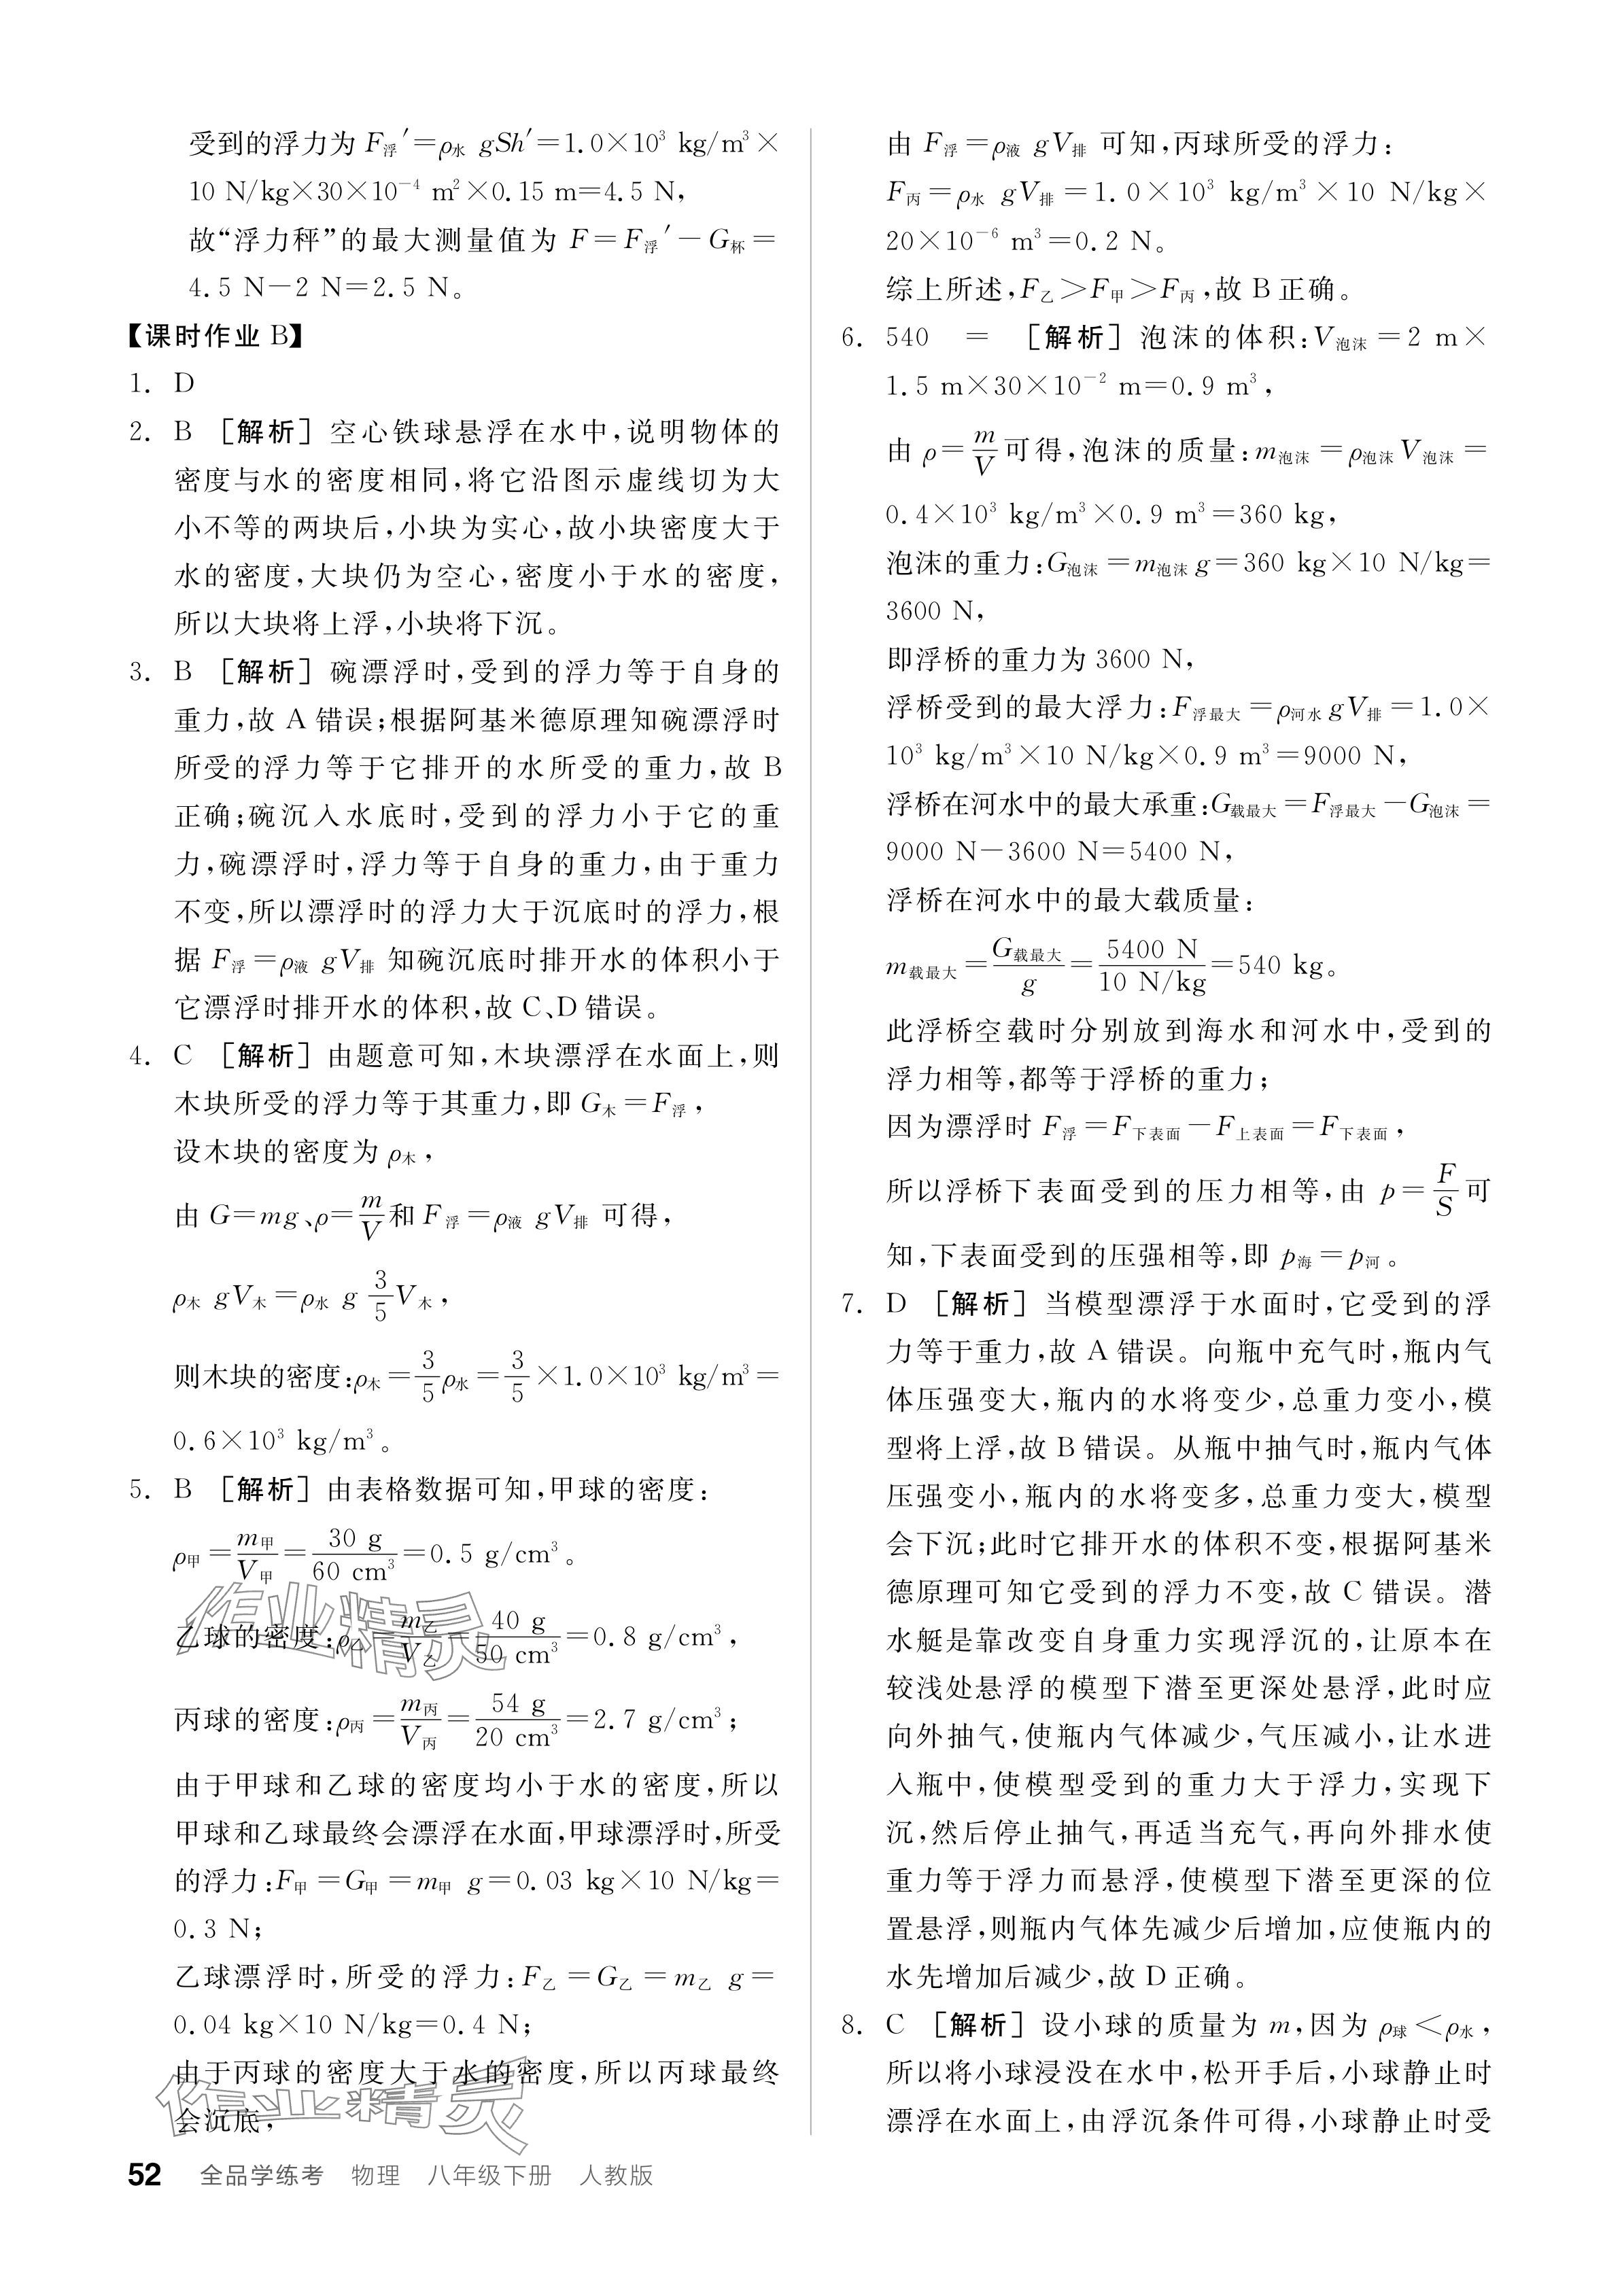 受到的浮力为 F浮′=ρ水 gSh′=1.0×10³ kg/m³×
10 N/kg×30×10⁻⁴ m²×0.15 m=4.5 N,
故“浮力秤”的最大测量值为 F=F浮′-G杯=
4.5 N-2 N=2.5 N。
【课时作业 B】
1. D
2. B [解析] 空心铁球悬浮在水中,说明物体的
密度与水的密度相同,将它沿图示虚线切为大
小不等的两块后,小块为实心,故小块密度大于
水的密度,大块仍为空心,密度小于水的密度,
所以大块将上浮,小块将下沉。
3. B [解析] 碗漂浮时,受到的浮力等于自身的
重力,故 A 错误;根据阿基米德原理知碗漂浮时
所受的浮力等于它排开的水所受的重力,故 B
正确;碗沉入水底时,受到的浮力小于它的重
力,碗漂浮时,浮力等于自身的重力,由于重力
不变,所以漂浮时的浮力大于沉底时的浮力,根
据 F浮=ρ液 gV排 知碗沉底时排开水的体积小于
它漂浮时排开水的体积,故 C、D 错误。
4. C [解析] 由题意可知,木块漂浮在水面上,则
木块所受的浮力等于其重力,即 G木=F浮,
设木块的密度为 ρ木,
由 G=mg、ρ=m/V和 F浮=ρ液 gV排 可得,
ρ木 gV木=ρ水 g 3/5 V木,
则木块的密度:ρ木=3/5ρ水=3/5×1.0×10³ kg/m³=
0.6×10³ kg/m³。
5. B [解析] 由表格数据可知,甲球的密度:
ρ甲=m甲/V甲=30 g/60 cm³=0.5 g/cm³。
乙球的密度:ρ乙=m乙/V乙=40 g/50 cm³=0.8 g/cm³,
丙球的密度:ρ丙=m丙/V丙=54 g/20 cm³=2.7 g/cm³;
由于甲球和乙球的密度均小于水的密度,所以
甲球和乙球最终会漂浮在水面,甲球漂浮时,所受
的浮力:F甲=G甲=m甲 g=0.03 kg×10 N/kg=
0.3 N;
乙球漂浮时,所受的浮力:F乙=G乙=m乙 g=
0.04 kg×10 N/kg=0.4 N;
由于丙球的密度大于水的密度,所以丙球最终
会沉底,
由 F浮=ρ液 gV排 可知,丙球所受的浮力:
F丙=ρ水 gV排=1.0×10³ kg/m³×10 N/kg×
20×10⁻⁶ m³=0.2 N。
综上所述,F乙>F甲>F丙,故 B 正确。
6. 540 = [解析] 泡沫的体积:V泡沫=2 m×
1.5 m×30×10⁻² m=0.9 m³,
由 ρ=m/V可得,泡沫的质量:m泡沫=ρ泡沫V泡沫=
0.4×10³ kg/m³×0.9 m³=360 kg,
泡沫的重力:G泡沫=m泡沫g=360 kg×10 N/kg=
3600 N,
即浮桥的重力为 3600 N,
浮桥受到的最大浮力:F浮最大=ρ河水gV排=1.0×
10³ kg/m³×10 N/kg×0.9 m³=9000 N,
浮桥在河水中的最大承重:G载最大=F浮最大-G泡沫=
9000 N-3600 N=5400 N,
浮桥在河水中的最大载质量:
m载最大=G载最大/g=5400 N/10 N/kg=540 kg。
此浮桥空载时分别放到海水和河水中,受到的
浮力相等,都等于浮桥的重力;
因为漂浮时 F浮=F下表面-F上表面=F下表面,
所以浮桥下表面受到的压力相等,由 p=F/S可
知,下表面受到的压强相等,即 p海=p河。
7. D [解析] 当模型漂浮于水面时,它受到的浮
力等于重力,故 A 错误。向瓶中充气时,瓶内气
体压强变大,瓶内的水将变少,总重力变小,模
型将上浮,故 B 错误。从瓶中抽气时,瓶内气体
压强变小,瓶内的水将变多,总重力变大,模型
会下沉;此时它排开水的体积不变,根据阿基米
德原理可知它受到的浮力不变,故 C 错误。潜
水艇是靠改变自身重力实现浮沉的,让原本在
较浅处悬浮的模型下潜至更深处悬浮,此时应
向外抽气,使瓶内气体减少,气压减小,让水进
入瓶中,使模型受到的重力大于浮力,实现下
沉,然后停止抽气,再适当充气,再向外排水使
重力等于浮力而悬浮,使模型下潜至更深的位
置悬浮,则瓶内气体先减少后增加,应使瓶内的
水先增加后减少,故 D 正确。
8. C [解析] 设小球的质量为 m,因为 ρ球<ρ水,
所以将小球浸没在水中,松开手后,小球静止时
漂浮在水面上,由浮沉条件可得,小球静止时受
作业精灵
作业精灵
52 全品学练考 物理 八年级下册 人教版